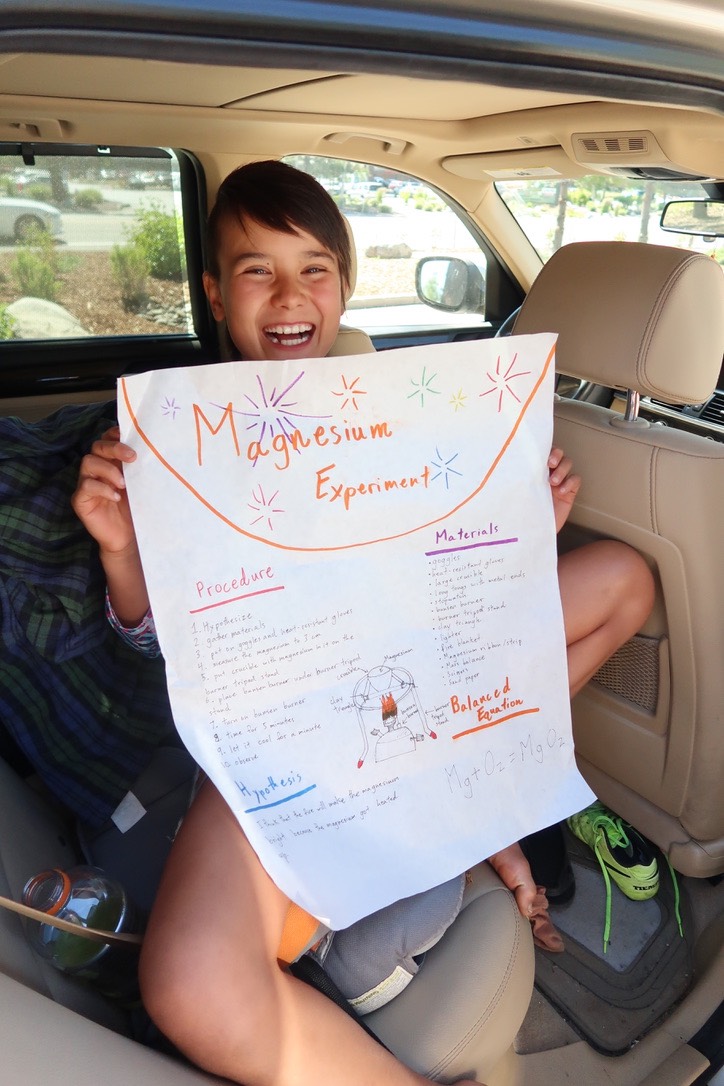 Magnesium
Experiment
Procedure
1. Hypothesize
2. gather materials
3. put on goggles and heat-resistant gloves
4. measure the magnesium to 3 cm
5. put crucible with magnesium in it on the
burner tripod stand
6. place bunsen burner under burner tripod
stand
7. turn on bunsen burner
8. time for 5 minutes
9. let it cool for a minute
10. observe
Hypothesis
I think that the fire will make the magnesium
bright because the magnesium got heated
up
Materials
• goggles
• heat-resistant gloves
• large crucible
• long tongs with metal ends
• bunsen burner
• burner tripod stand
• clay triangle
• lighter
• fire blanket
• Magnesium ribbon/strip
• Math balance
• sand paper
Magnesium
crucible
clay
triangle
bunsen
burner
burner
tripod
stand
Balanced
Equation
Mg + O2 = MgO2